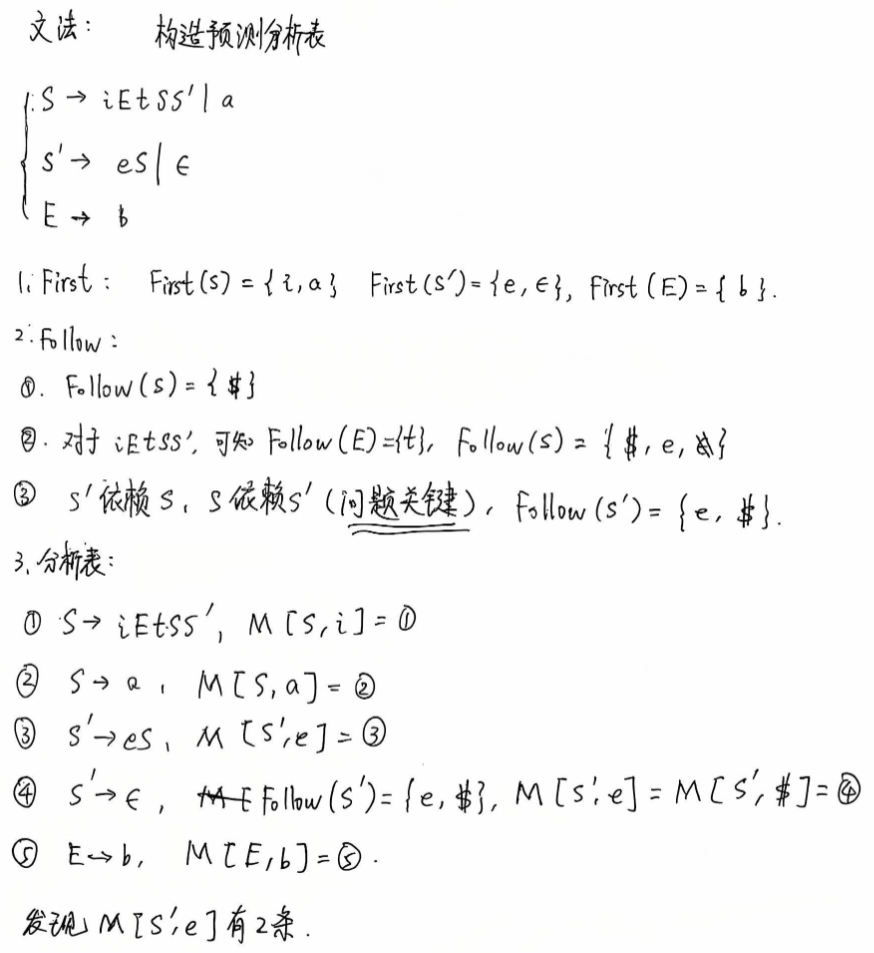 文法： 构造预测分析表
S → iEtSS' | a
S' → eS | ϵ
E → b
1. First： First(S) = {i, a} First(S') = {e, ϵ}, First(E) = { b }.
2. Follow：
①. Follow(S) = { $ }
②. 对于 iEtSS', 可知 Follow(E)={t}, Follow(S) = { $, e, }
③ S'依赖S, S依赖S'（问题关键）, Follow(S') = {e, $}.
3. 分析表：
① S → iEtSS', M[S, i] = ①
② S → a, M[S, a] = ②
③ S' → eS, M[S', e] = ③
④ S' → ϵ, M[ Follow(S') = {e, $}, M[S', e] = M[S', $] = ④
⑤ E → b, M[E, b] = ⑤.
发现 M[S', e] 有2条.